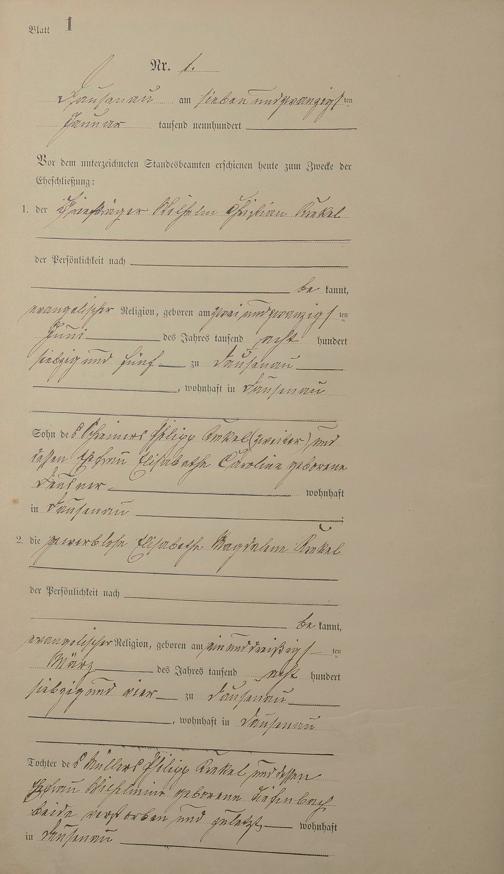 Blatt 1
Nr. 1.
Dausenau am sieben und zwanzigsten
Januar tausend neunhundert
Vor dem unterzeichneten Standesbeamten erschienen heute zum Zwecke der
Eheschließung:
1. der Briefträger Wilhelm Christian Kunkel
der Persönlichkeit nach
be kannt,
evangelischer Religion, geboren am zwei und zwanzigsten
Juni des Jahres tausend acht hundert
siebzig und fünf zu Dausenau
, wohnhaft in Dausenau
Sohn des Philipp Kunkel (zweiter) und
dessen Ehefrau Elisabethe Caroline geborene
wohnhaft
in Dausenau
2. die gewerblose Elisabethe Magdalene Kunkel
der Persönlichkeit nach
be kannt,
evangelischer Religion, geboren am ein und dreißigsten
März des Jahres tausend acht hundert
siebzig und vier zu Dausenau
, wohnhaft in Dausenau
Tochter des Müllers Philipp Kunkel und dessen
Ehefrau Wilhelmine geborene
beide verstorben und zuletzt wohnhaft
in Dausenau